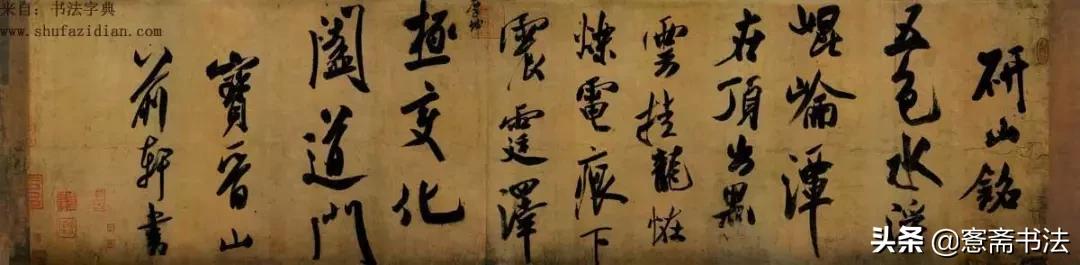 来自：书法字典
www.shufazidian.com
研山銘
五色水浮
崐崘潭
在頂出黑
雲挂龍怪
爍電痕下
震霆澤
極变化
闔道門
寶晉山
前軒書
头条@窓斋书法